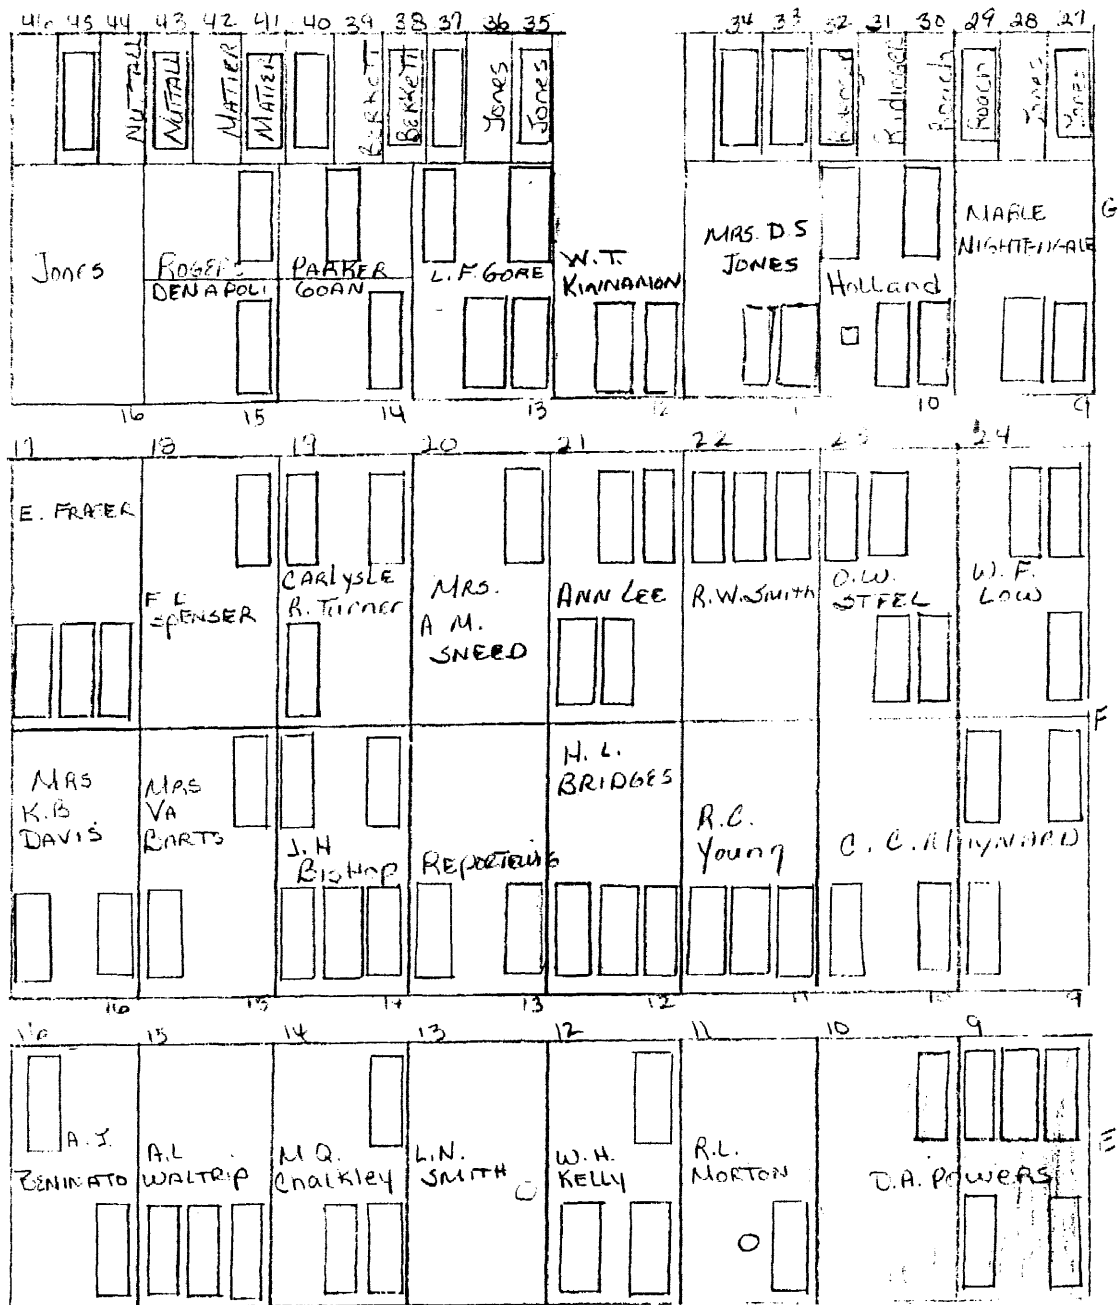 46 45 44 43 42 41 40 39 38 37 36 35 34 33 32 31 30 29 28 27
NUTTALL NUTTALL MATIER MATIER Jones Jones Roach Roach Jones Jones
G
Jones
ROGERS
DENAPOLI
PARKER
GOAN
L. F. GORE
W. T.
KINNAMON
MRS. D. S
JONES
Holland
MABLE
NIGHTENGALE
16 15 14 13 12 10 9
17 18 19 20 21 22 23 24
E. FRAZER
F L
SPENSER
CARLYSLE
R. Turner
MRS.
A M.
SNEED
ANN LEE
R. W. Smith
O. W.
STEEL
W. F.
LOW
F
MRS
K. B
DAVIS
MRS
VA
BARTS
J. H
BISHOP
H. L.
BRIDGES
R. C.
Young
C. C. MAYNARD
16 15 14 13 12 11 10 9
16 15 14 13 12 11 10 9
E
A. J.
ZENINATO
A. L
WALTRIP
M Q.
Chalkley
L. N.
SMITH
W. H.
KELLY
R. L.
MORTON
D. A. POWERS